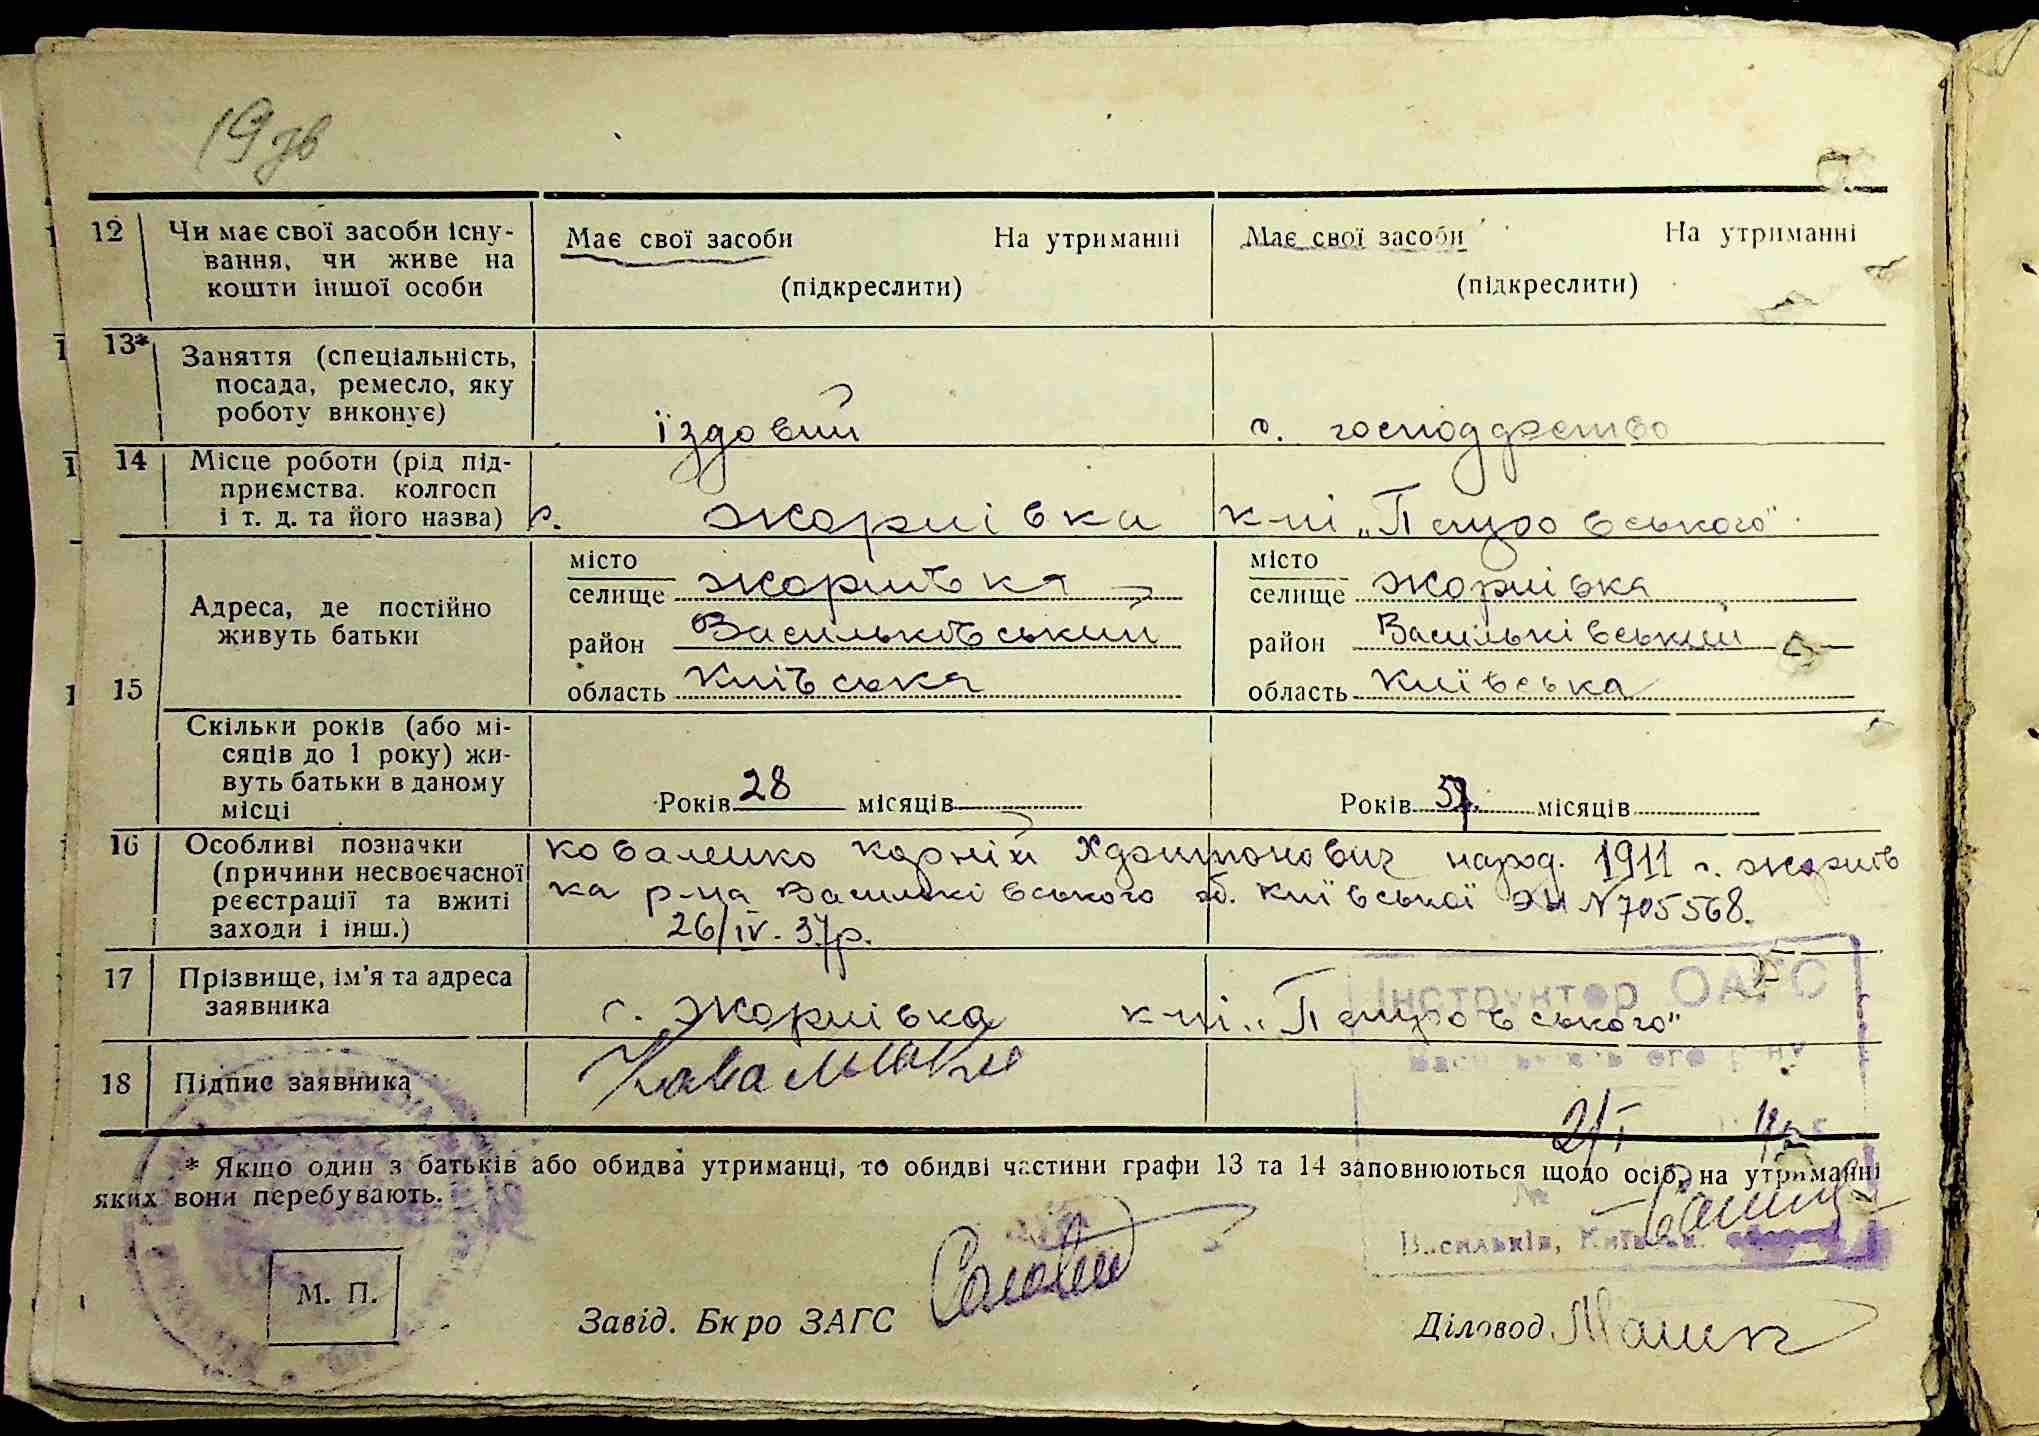 19 зв
12 Чи має свої засоби існу-
вання, чи живе на
кошти іншої особи
Має свої засоби На утриманні
(підкреслити)
Має свої засоби На утриманні
(підкреслити)
13* Заняття (спеціальність,
посада, ремесло, яку
роботу виконує)
їздовий
с. господарство
14 Місце роботи (рід під-
приємства. колгосп
і т. д. та його назва)
с. Жорнівка
к-пі „Петровського"
15 Адреса, де постійно
живуть батьки
місто
селище Жорнівка
район Васильківський
область Київська
місто
селище Жорнівка
район Васильківський
область Київська
Скільки років (або мі-
сяців до 1 року) жи-
вуть батьки в даному
місці
Років 28 місяців
Років місяців
16 Особливі позначки
(причини несвоєчасної
реєстрації та вжиті
заходи і інш.)
Коваленко Корній народ. 1911 с. Жорнів
ка р-на Васильківського об. Київської № 705568.
26/IV. 37р.
17 Прізвище, ім'я та адреса
заявника
с. Жорнівка к-пі „Петровського"
Інструктор ОАГС
18 Підпис заявника
2/I
* Якщо один з батьків або обидва утриманці, то обидві частини графи 13 та 14 заповнюються щодо осіб, на утриманні
яких вони перебувають.
Васильків, Київськ.
М. П.
Завід. Бюро ЗАГС
Діловод